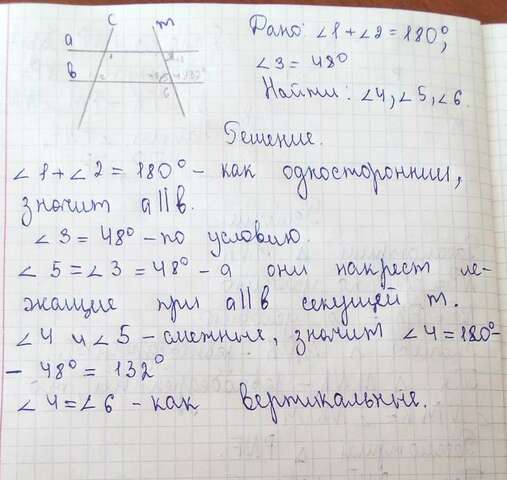 c m
a
в
Дано: ∠1+∠2=180°,
∠3=48°
Найти: ∠4,∠5,∠6.
Решение.
∠1+∠2=180°- как односторонние,
значит a||в.
∠3=48°-по условию.
∠5=∠3=48°- а они накрест ле-
жащие при a||в секущей m.
∠4 и ∠5 - смежные, значит ∠4=180°-
- 48°= 132°
∠4=∠6 - как вертикальные.